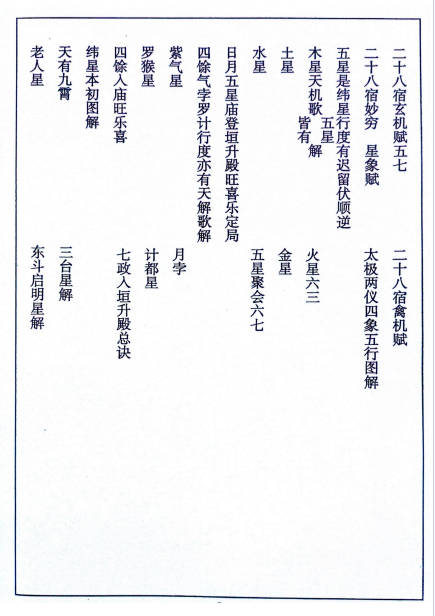 二十八宿玄机赋五七　二十八宿禽机赋
二十八宿妙穷　星象赋　太极两仪四象五行图解
五星是纬星行度有迟留伏顺逆
木星天机歌　五星皆有解　火星六三
土星　金星
水星　五星聚会六七
日月五星庙登垣升殿旺喜乐定局
四馀气孛罗计行度亦有天解歌解
紫气星　月孛
罗猴星　计都星
四馀入庙旺乐喜　七政入垣升殿总诀
纬星本初图解
天有九霄　三台星解
老人星　东斗启明星解